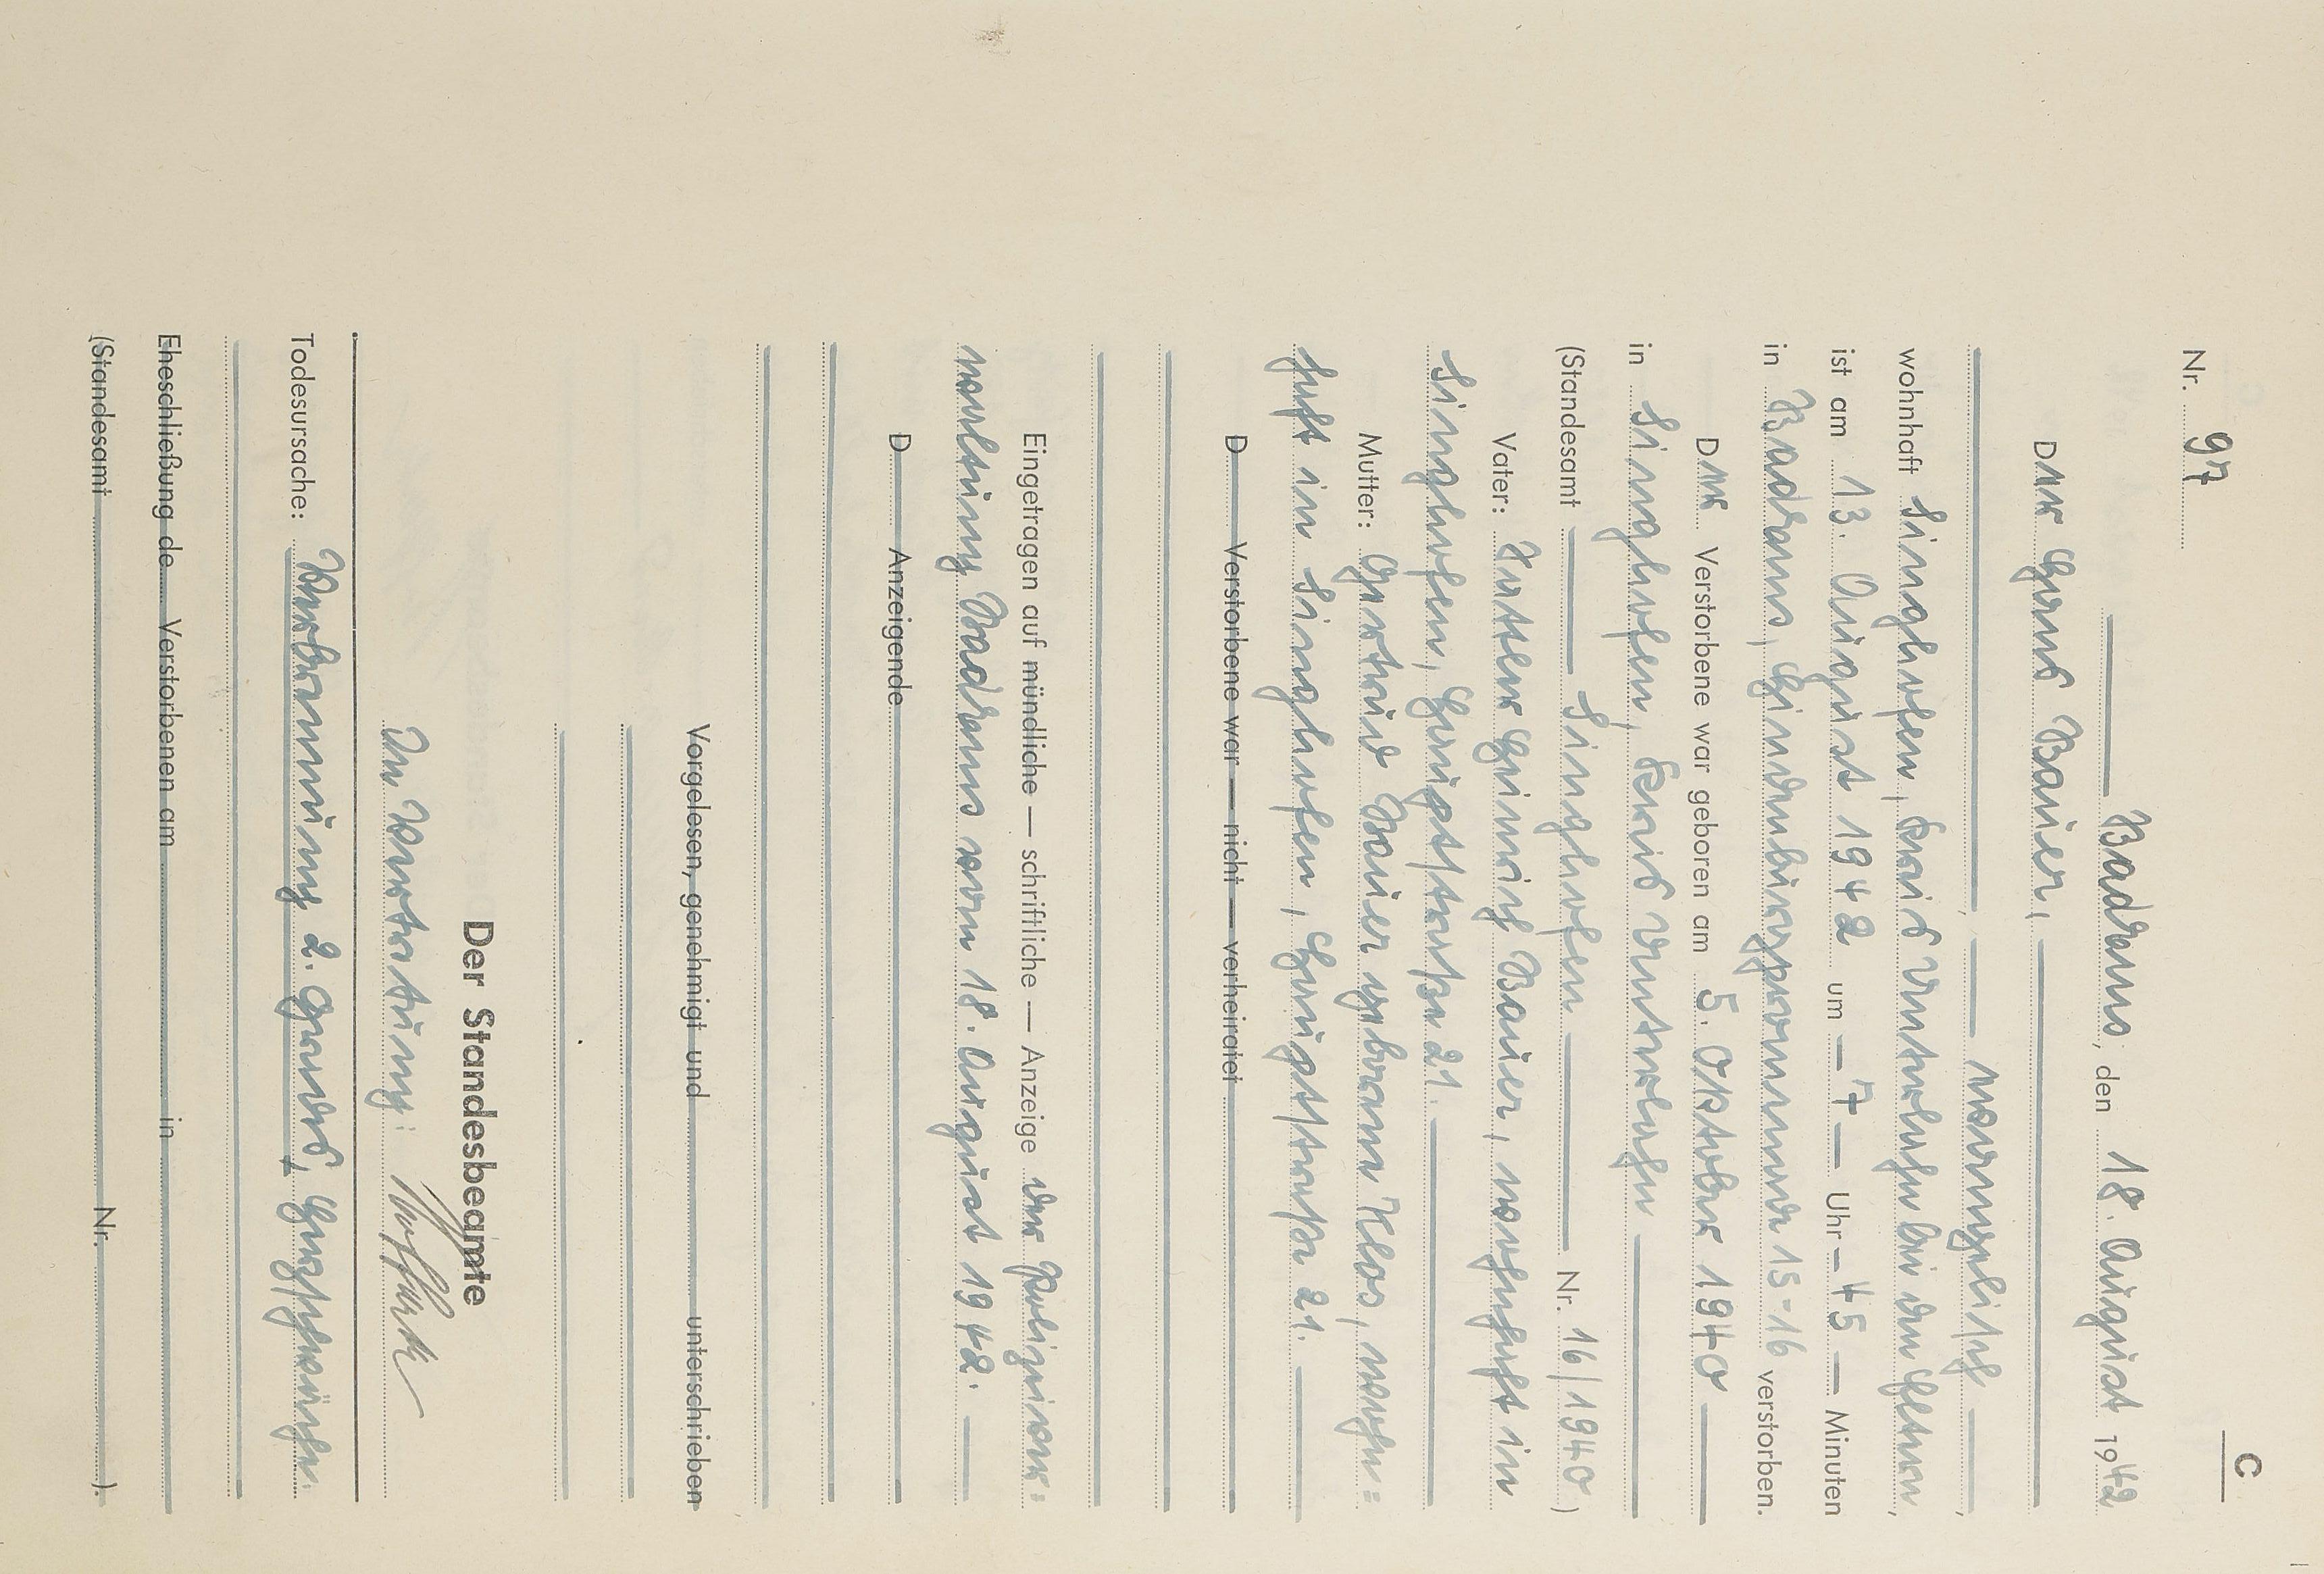 C
Nr. 97
Bad Ems, den 18. August 1942
Der Hans Bauer,
evangelisch
wohnhaft Singhofen, Kreis Unterlahn bei den Eltern,
ist am 13. August 1942 um 7 Uhr 45 Minuten
in Bad Ems, Hindenburgpromenade 15-16 verstorben.
Der Verstorbene war geboren am 5. Oktober 1940
in Singhofen, Kreis Unterlahn
(Standesamt Singhofen Nr. 16/1940)
Vater: Heinrich Bauer, wohnhaft in
Singhofen, Hauptstraße 21.
Mutter: Gertrud Bauer geborene Klos, wohn=
haft in Singhofen, Hauptstraße 21.
D Verstorbene war — nicht — verheiratet
Eingetragen auf mündliche — schriftliche — Anzeige der Polizeiver=
waltung Bad Ems vom 18. August 1942.
D Anzeigende
Vorgelesen, genehmigt und unterschrieben
Der Standesbeamte
In Vertretung:
Todesursache: Verbrennung 2. Grades, Herzschwäche.
Eheschließung de Verstorbenen am in
(Standesamt Nr. ).